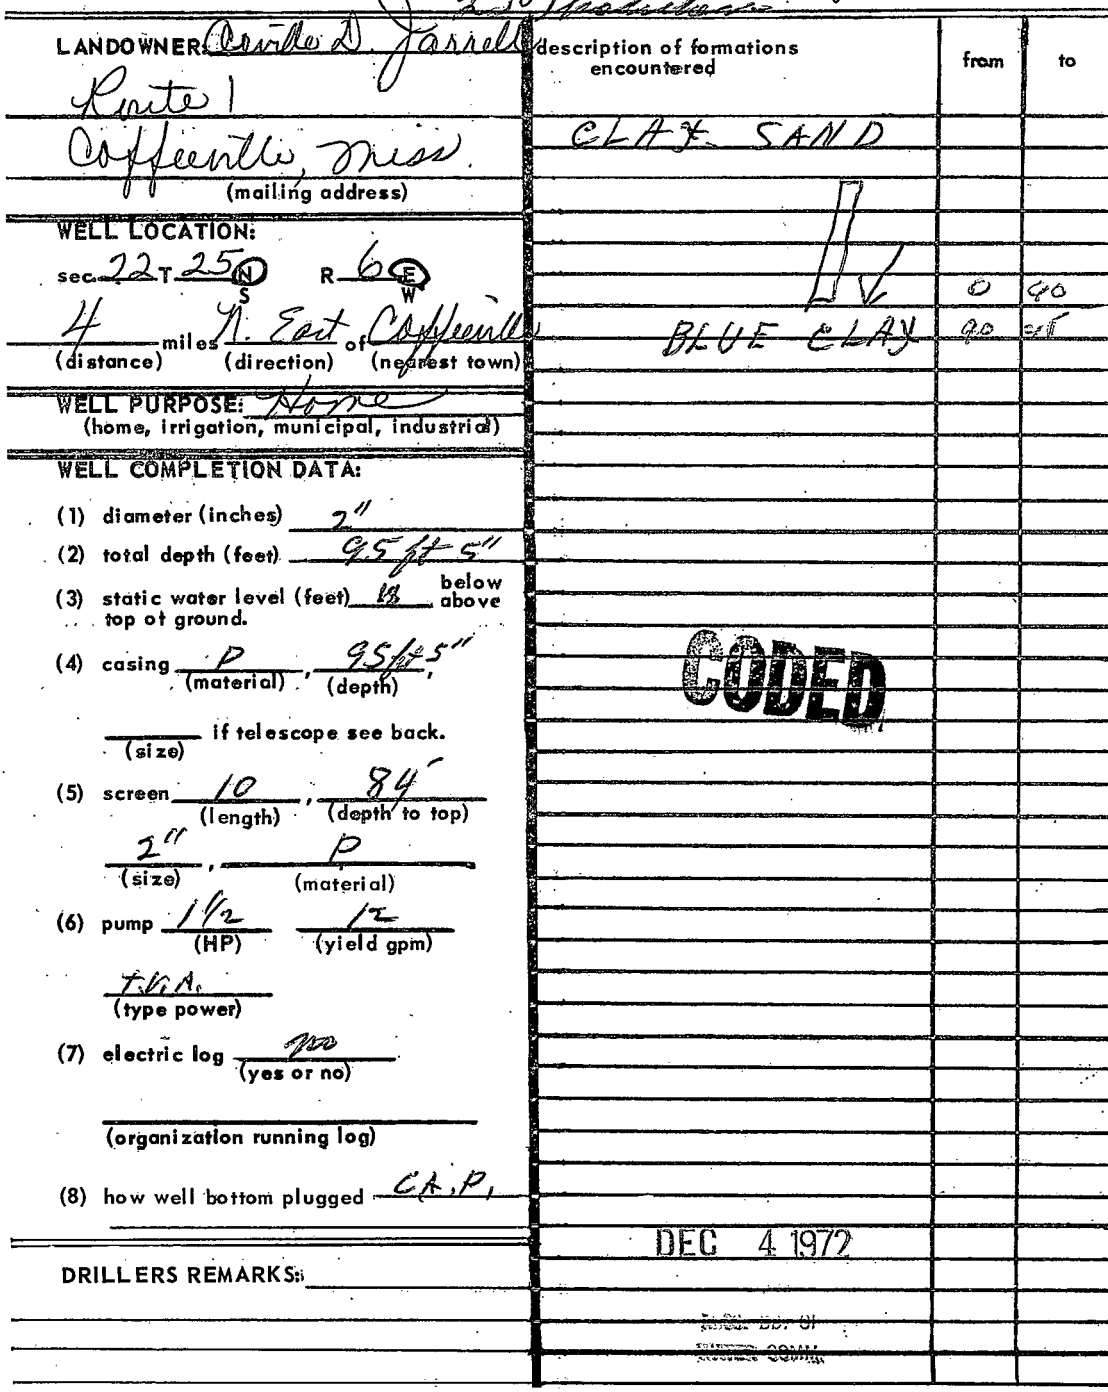 LANDOWNER: D. Jarrell
Route 1
Coffeeville, Miss.
(mailing address)
WELL LOCATION:
sec 22 T 25 N R 6 E
S W
4 miles N. East of Coffeeville
(distance) (direction) (nearest town)
WELL PURPOSE: Home
(home, irrigation, municipal, industrial)
WELL COMPLETION DATA:
(1) diameter (inches) 2"
(2) total depth (feet) 95 ft 5"
(3) static water level (feet) below
above
top of ground.
(4) casing P, 95 ft 5",
(material) (depth)
(size) if telescope see back.
(5) screen 10, 84'
(length) (depth to top)
2", P
(size) (material)
(6) pump 1 1/2 12
(HP) (yield gpm)
T.V.A.
(type power)
(7) electric log no
(yes or no)
(organization running log)
(8) how well bottom plugged CA.P.
DRILLERS REMARKS:
description of formations
encountered
from to
CLAY SAND
0 90
BLUE CLAY 90
CODED
DEC 4 1972